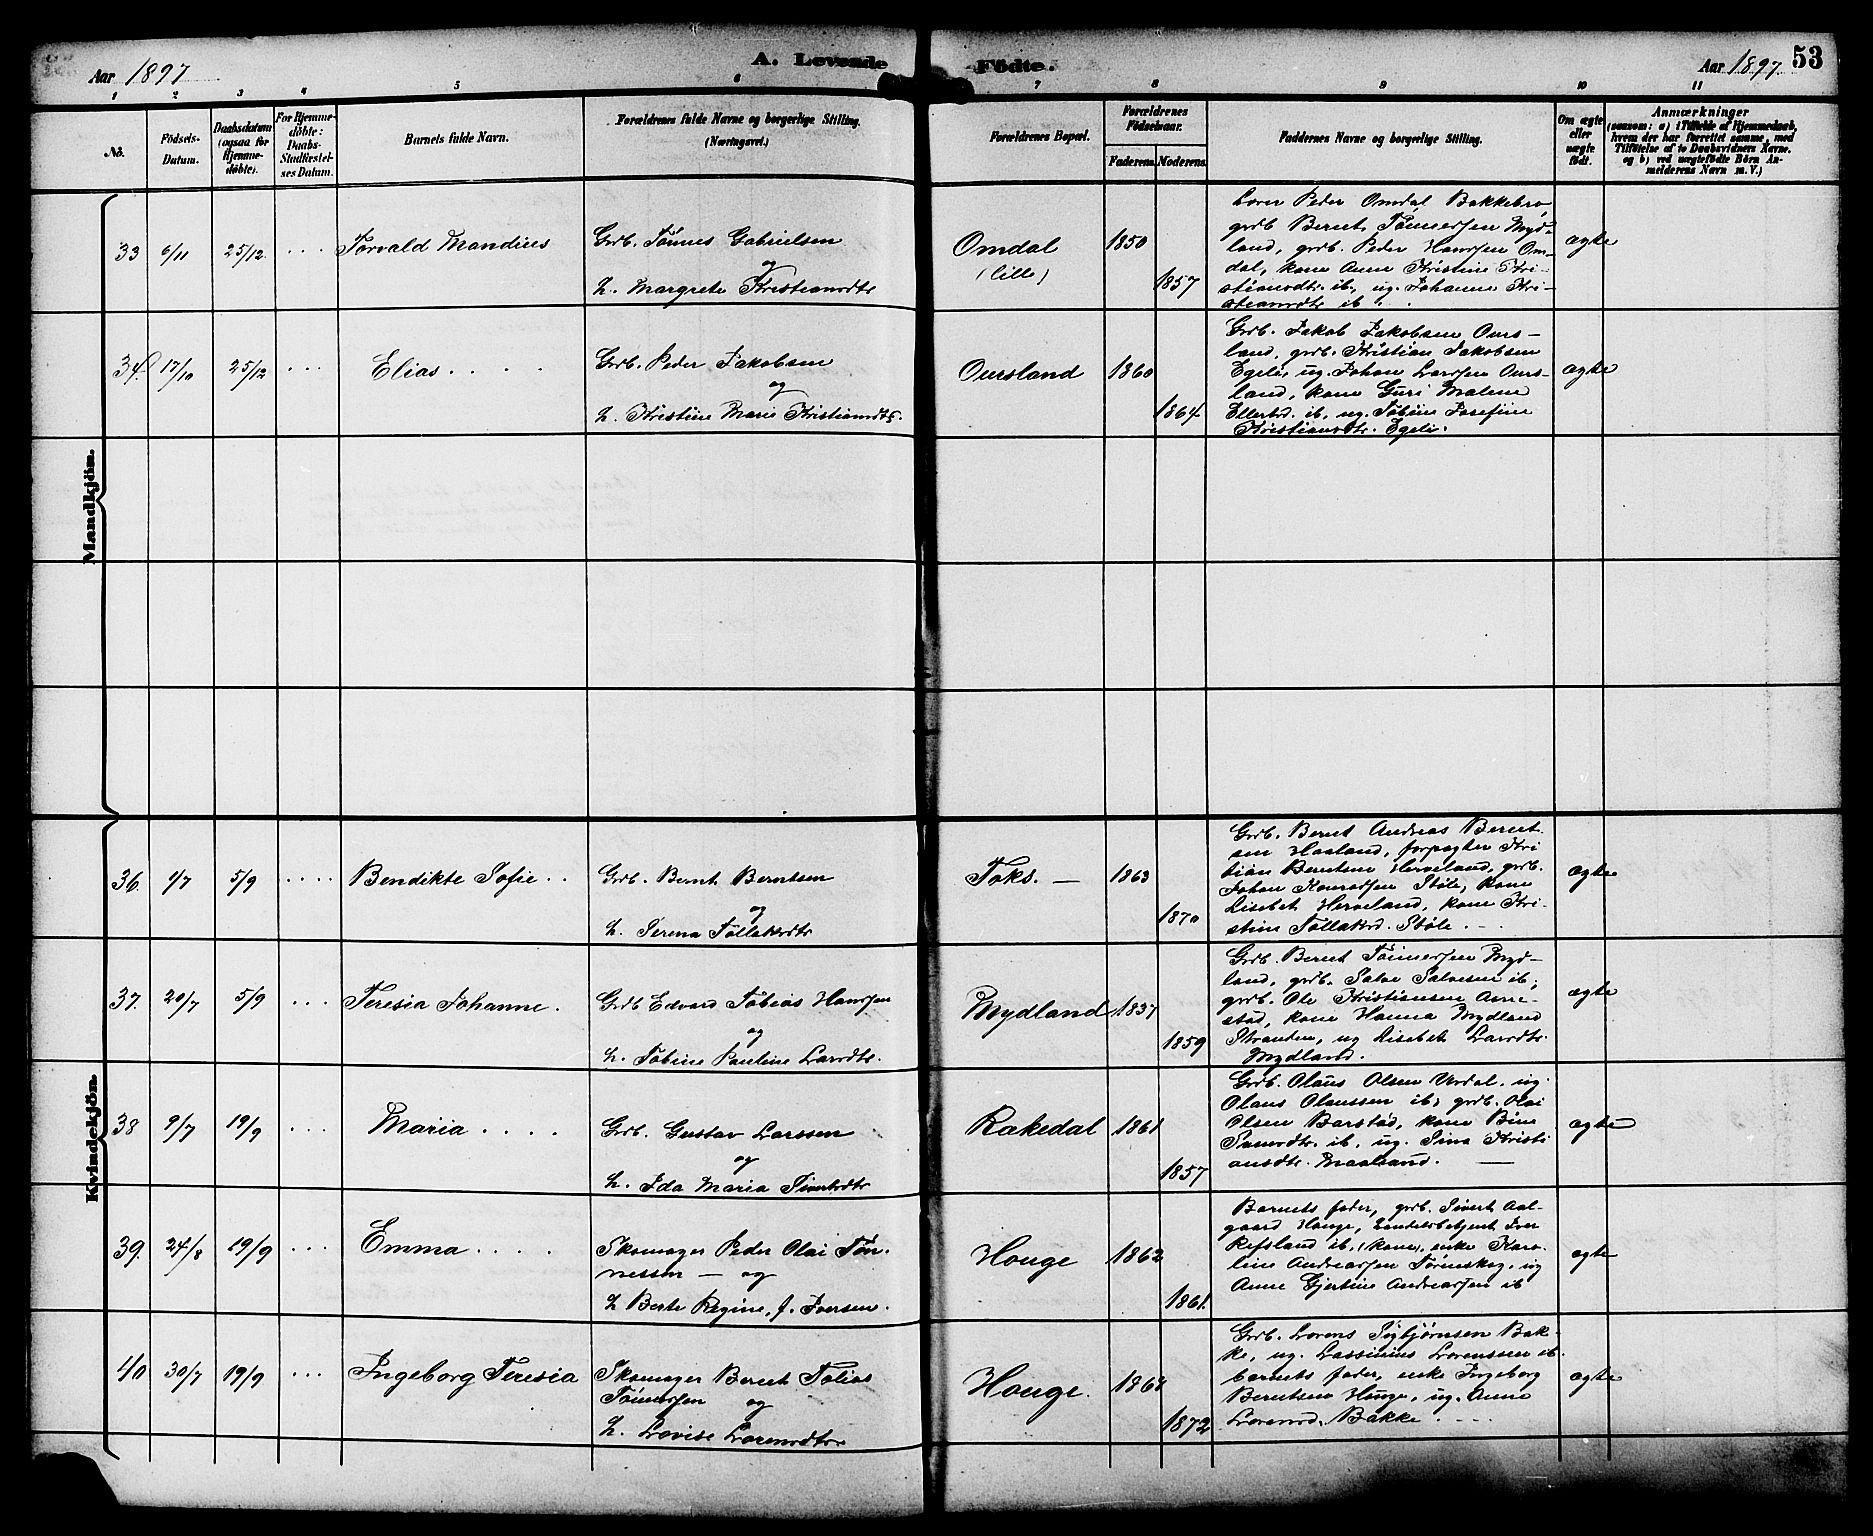 Aar 1897
A. Levende
Födte.
Aar 1897. 53
1 2 3 4 5 6 7 8 9 10 11
No.
Födsels-
Datum.
Daabsdatum
(ogsaa for
Hjemme-
döbte).
For Hjemme-
döbte:
Daabs-
Stadfæstel-
ses Datum.
Barnets fulde Navn.
Forældrenes fulde Navne og borgerlige Stilling.
(Næringsvei.)
Forældrenes Bopæl.
Forældrenes
Födselsaar.
Faderens. Moderens.
Faddernes Navne og borgerlige Stilling.
Om ægte
eller
uægte
födt.
Anmærkninger
(saasom: a) i Tilfælde af Hjemmedaab,
hvem der har forrettet samme, med
Tilföielse af to Daabsvidners Navne.
og b) ved uægtefödte Börn An-
melderens Navn m. V.)
Mandkjön.
33 6/11 25/12. . . . Torvald Mandius
Grdb. Tönnes Gabrielsen
og
h. Margrete Kristiansdtr
Omdal
(lille)
1850
1857
Lærer Peder Omdal Bakkebro
grdb Bernt Tönnesen Myd-
land, grdb. Peder Hansen Om-
dal, kone Anne Kristine Kri-
stiansdtr. ib., ug. Johanne Kri-
stiansdtr ib. . .
ægte
34. 17/10 25/12 . . . Elias . . . .
Grdb. Peder Jakobsen
og
h. Kristine Marie Kristiansdtr.
Oursland
1860
1864
Grdb. Jakob Jakobsen Ours-
land, grdb. Kristian Jakobsen
Egeli, ug. Johan Larsen Ours-
land, kone Guri Malene
Ellertsd. ib, ug. Tobine Josefine
Kristiansdtr. Egeli.
ægte
Kvindekjön.
36. 1/7 5/9 . . . . Bendikte Sofie . .
Grdb. Bernt Berntsen
og
h. Serena Tollaksdtr
Foks. —
1863
1870
Grdb. Bernt Andreas Bernt-
sen Haaland, forpagter Kri
stian Berntsen Herveland, grdb.
Johan Konradsen Støle, kone
Lisebet Herveland, kone Kri-
stine Tollaksd. Støle . . .
ægte
37. 20/7 5/9 . . . Teresia Johanne .
Grdb Edvard Tobias Hansen
og
h. Tobine Pauline Larsdtr.
Mydland
1837
1859
Grdb. Bernt Tönnesen Myd-
land, grdb. Salve Salvesen ib,
grdb. Ole Kristiansen Aare-
stad, kone Hanna Mydland
Stranden, ug Lisebet Larsdtr.
Mydland.
ægte
38 9/7 19/9 . . . Maria . . . .
Grdb. Gustav Larssen
og
h. Ida Maria Sivertsdtr
Rakedal
1861
1857
Grdb. Olaus Olsen Urdal, ug.
Olaus Olaussen ib, grdb. Olai
Olsen Barstad, kone Bine
ib, ug. Sina Kristi
ansdtr. —
ægte
39. 24/8 19/9 . . . Emma . . . .
Skomager Peder Olai Tön-
nessen — og
h Berte Regine, f. Iversen.
Houge
1862
1861.
Barnets fader, grdb. Sivert Aal-
gaard Houge, Handelsbetjent Iver
Refsland ib, (kone), enke Karo-
line Andreassen Tørneskog, ug
Anne Gjertine Andreassen ib
ægte
40 30/7 19/9 . . . Ingeborg Teresia
Skomager Bernt Tobias
Tönnesen og
h. Lovise Lorensdtr
Houge.
1868
1872
Grdb. Lorens Sigbjørnsen Bak-
ke, ug. Lassinius Lorenssen ib.
barnets fader, enke Ingeborg
Berntsen Houge, ug. Anne
Lorensd. Bakke . . .
ægte